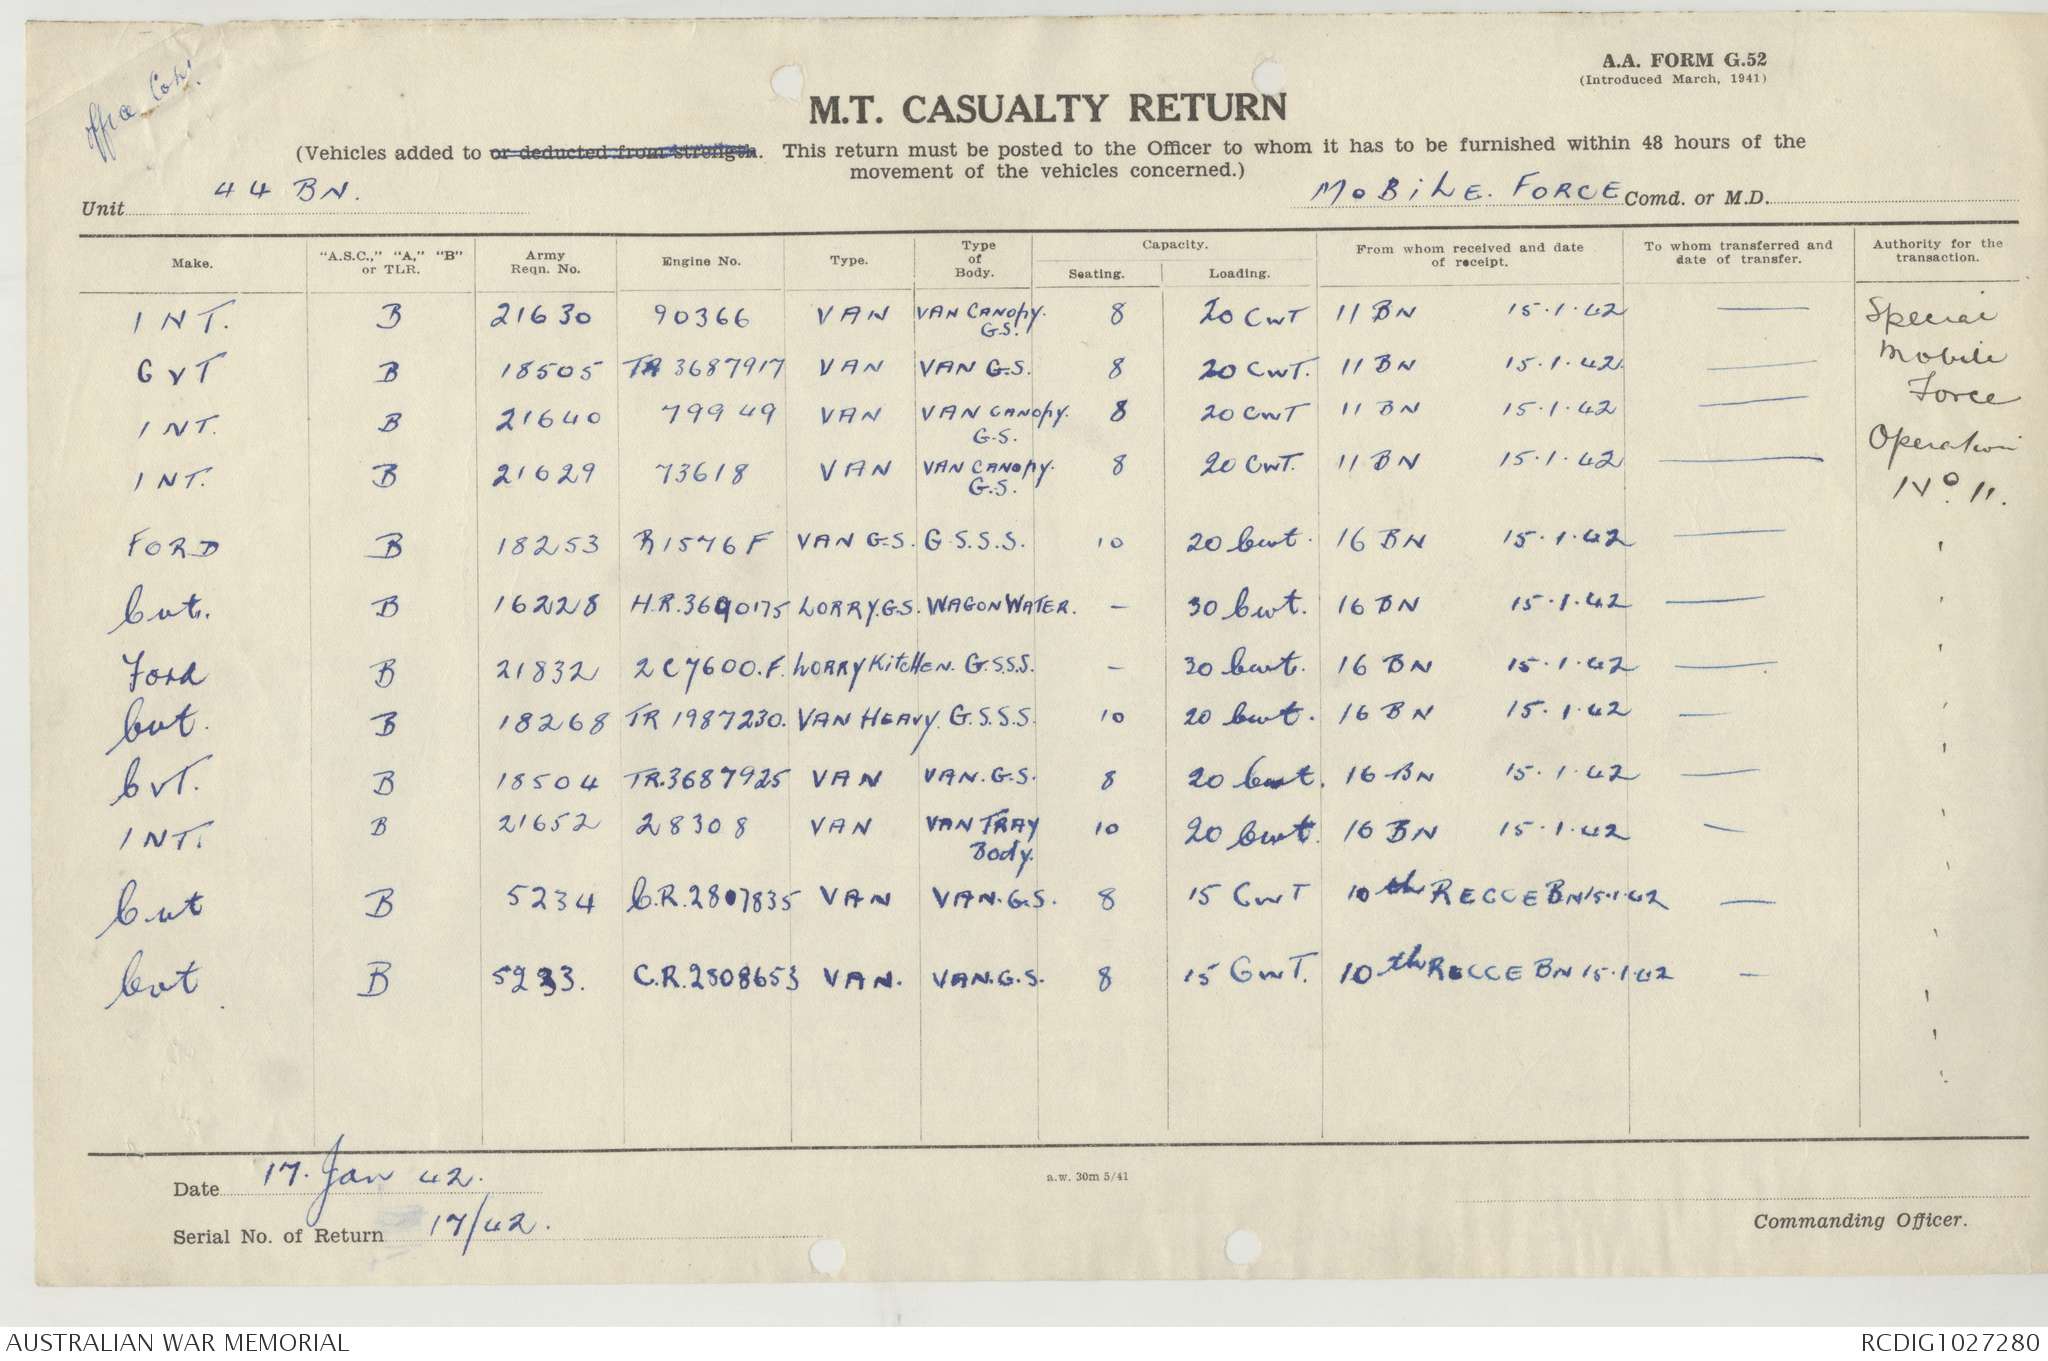 Office Cop.
A.A. FORM G.52
(Introduced March, 1941)
M.T. CASUALTY RETURN
(Vehicles added to or deducted from strength. This return must be posted to the Officer to whom it has to be furnished within 48 hours of the
movement of the vehicles concerned.)
Unit 44 BN. MOBILE. FORCE Comd. or M.D.
Make. "A.S.C.," "A," "B" or TLR. Army Reqn. No. Engine No. Type. Type of Body. Capacity. Seating. Loading. From whom received and date of receipt. To whom transferred and date of transfer. Authority for the transaction.
INT. B 21630 90366 VAN VAN CANOPY. G.S. 8 20 CWT 11 BN 15.1.42 — Special
GVT B 18505 TR 3687917 VAN VAN G.S. 8 20 CWT. 11 BN 15.1.42. — Mobile
Force
INT. B 21640 79949 VAN VAN CANOPY. G.S. 8 20 CWT 11 BN 15.1.42 —
Operation
INT. B 21629 73618 VAN VAN CANOPY. G.S. 8 20 CWT. 11 BN 15.1.42 —
No 11.
FORD B 18253 R1576F VAN G.S. G.S.S.S. 10 20 Cwt. 16 BN 15.1.42 —
Cvt. B 16228 H.R.3690175 LORRY.G.S. WAGON WATER. – 30 Cwt. 16 BN 15.1.42 —
Ford B 21832 2C7600.F. LORRY KITCHEN. G.S.S.S. – 30 Cwt. 16 BN 15.1.42 —
Cvt. B 18268 TR 1987230. VAN HEAVY. G.S.S.S. 10 20 Cwt. 16 BN 15.1.42 —
CVT. B 18504 TR.3687925 VAN VAN.G.S. 8 20 Cwt. 16 BN 15.1.42 —
INT. B 21652 28308 VAN VAN TRAY Body. 10 20 Cwt. 16 BN 15.1.42 —
Cvt B 5234 C.R.2807835 VAN VAN.G.S. 8 15 CWT 10th RECCE BN 15.1.42 —
Cvt B 5233. C.R.2808653 VAN. VAN.G.S. 8 15 CWT. 10th RECCE BN 15.1.42 —
Date 17. Jan 42.
a.w. 30m 5/41
Serial No. of Return 17/42.
Commanding Officer.
AUSTRALIAN WAR MEMORIAL
RCDIG1027280